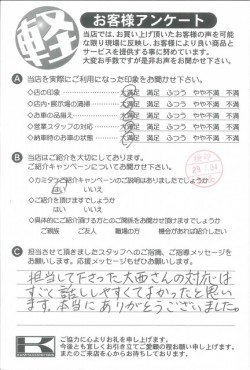 軽
お客様アンケート
当店では、お買い上げ頂いたお客様の声を可能
な限り現場に反映し、お客様により良い商品と
サービスを提供する事に努めています。
大変お手数ですが是非お声をお聞かせ下さい。
A 当店を実際にご利用になった印象をお聞かせ下さい。
◇店の印象 大満足 満足 ふつう やや不満 不満
◇店内・展示場の清掃 大満足 満足 ふつう やや不満 不満
◇お車の品揃え 大満足 満足 ふつう やや不満 不満
◇営業スタッフの対応 大満足 満足 ふつう やや不満 不満
◇納車時のお車の状態 大満足 満足 ふつう やや不満 不満
B 当店はご紹介を大切にしてあります。
ご紹介キャンペーンについてお聞かせ下さい。
◇カミタケご紹介キャンペーンのご説明はありましたでしょうか
はい いいえ
◇ご紹介を頂けますでしょうか
はい いいえ
◇具体的にご紹介頂ける方との関係をお聞かせ頂けますでしょうか
ご親族 ご友人 職場の方 機会があれば紹介したい
C 担当させて頂きましたスタッフへのご指摘、ご指導メッセージを
お願いします。応援メッセージもぜひお願いします。
担当して下さった大西さんの対応は
すごく話ししやすくてよかったと思い
ます。本当にありがとうございました。
K
ご協力に心よりお礼を申し上げます。
今後とも宜しくお引き立てご愛顧の程お願い申し上げます。
またのご来店を心からお待ちしております。